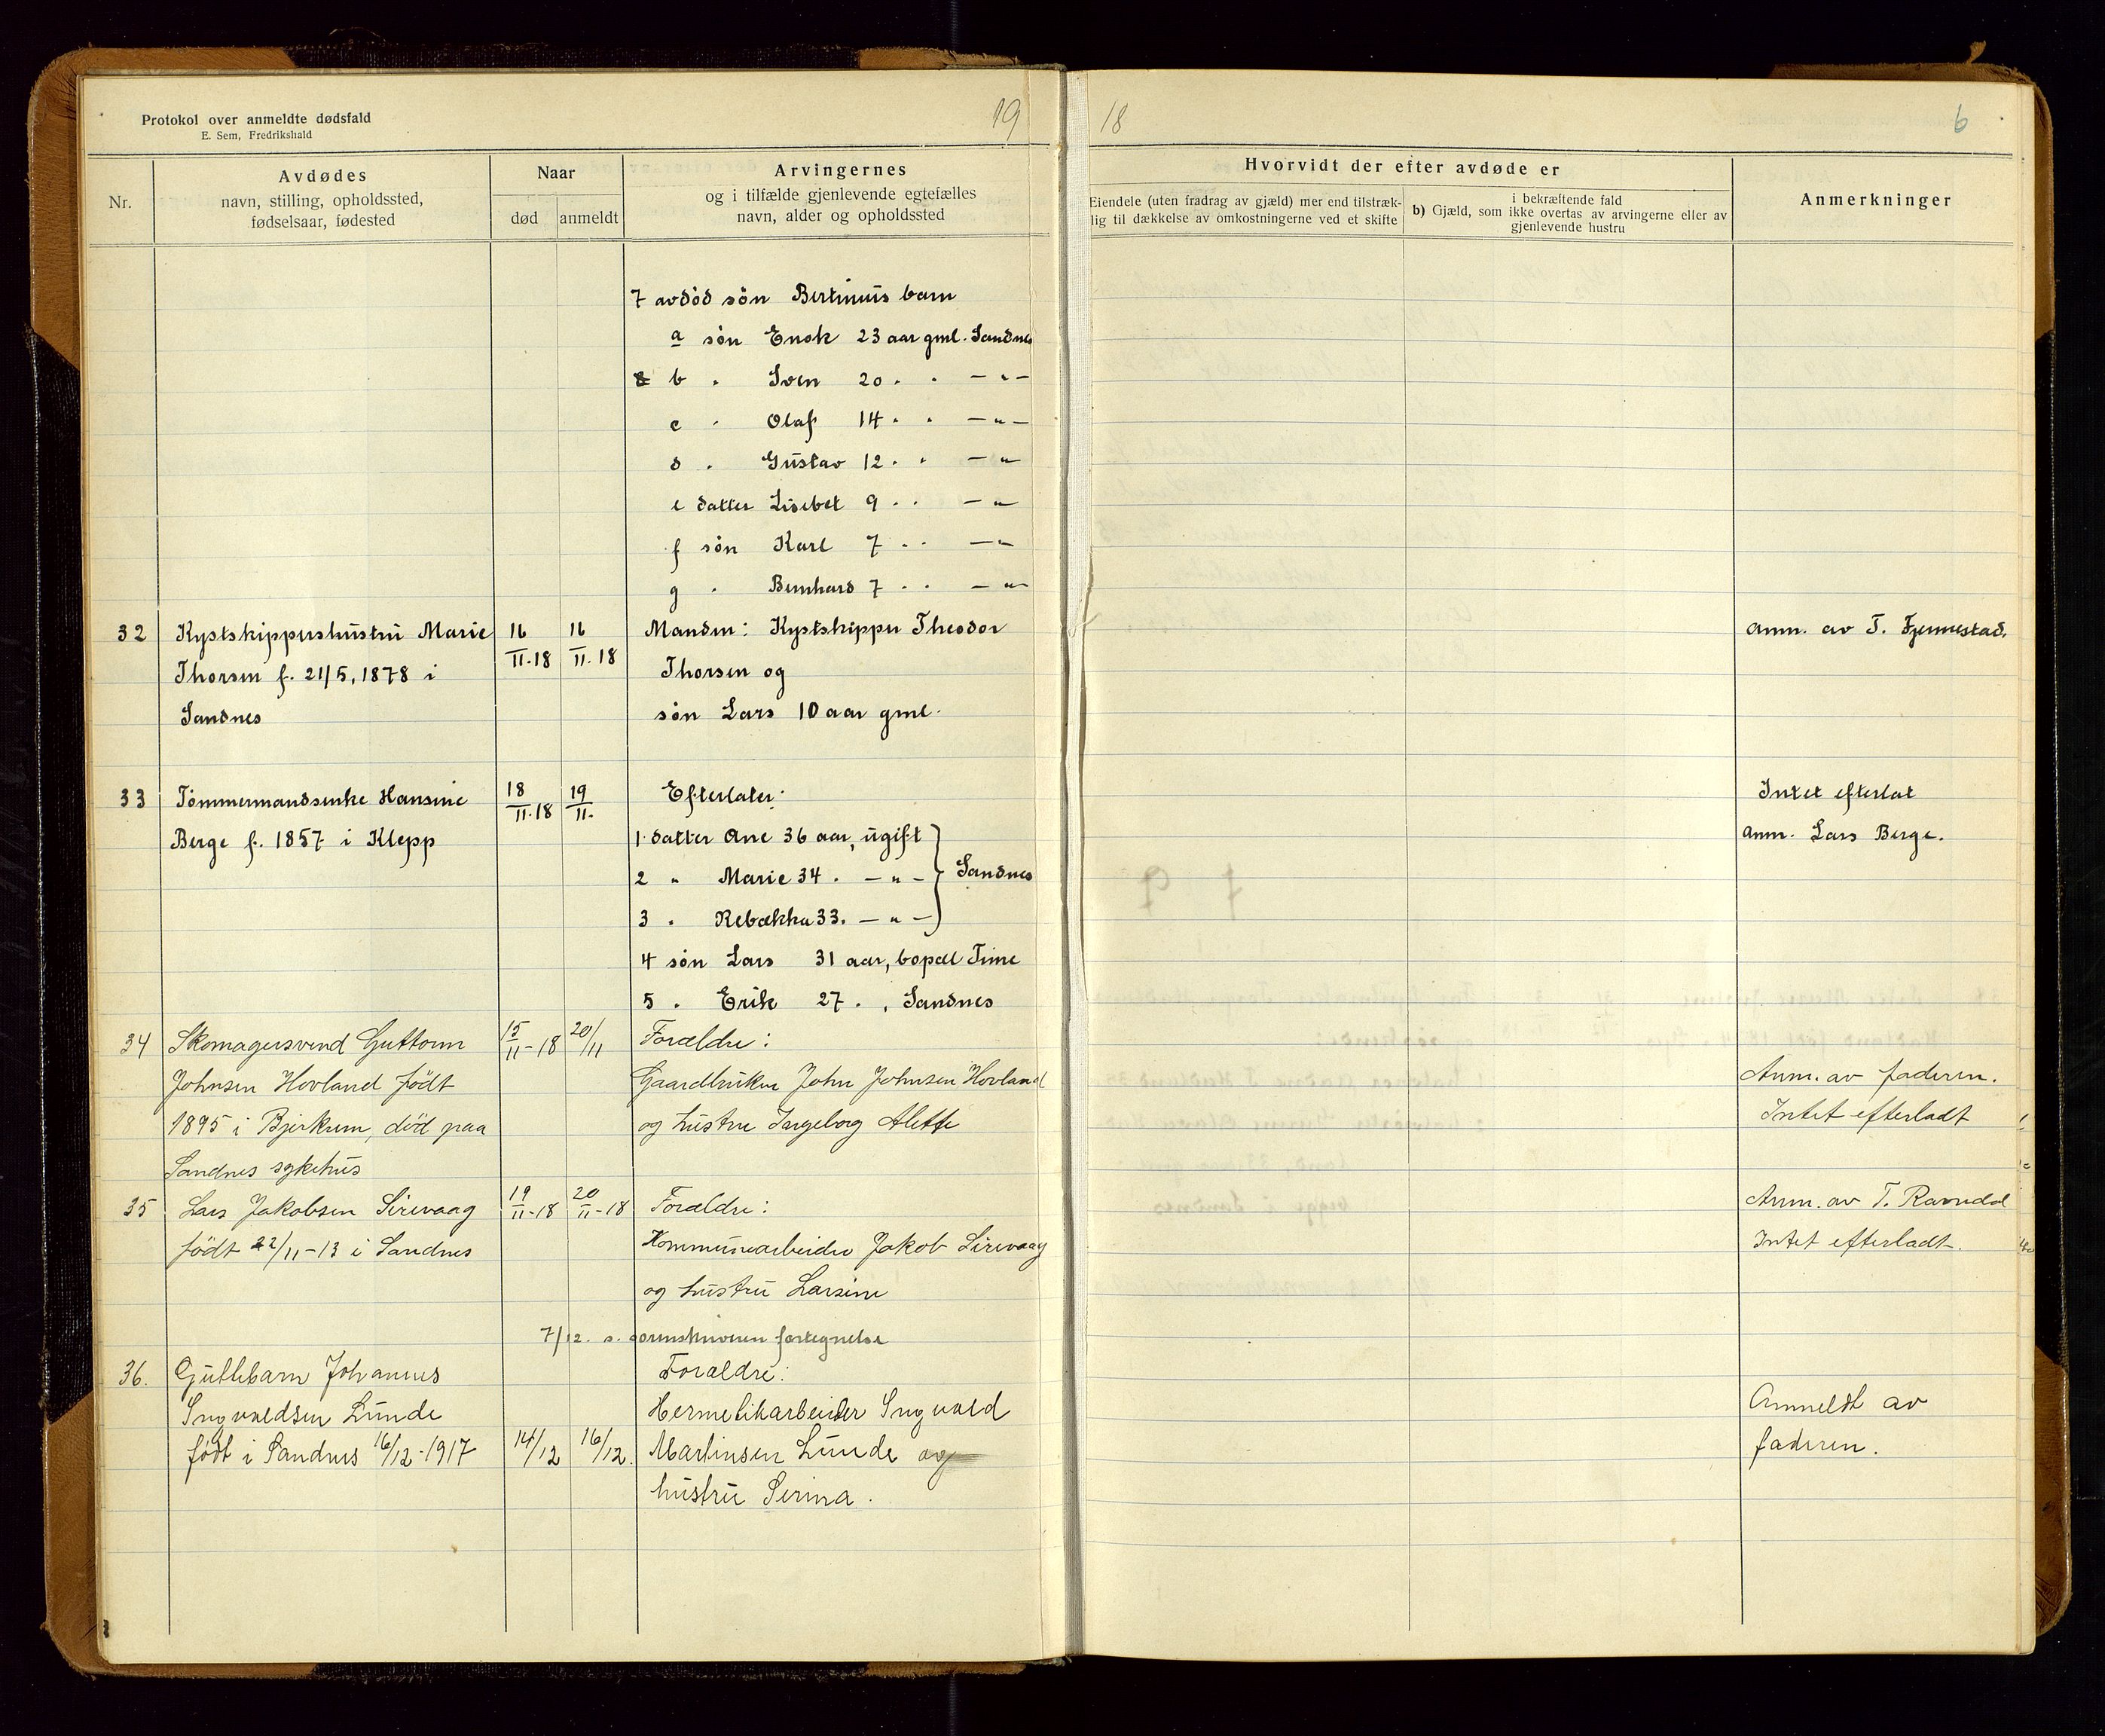 Protokol over anmeldte dødsfald
E. Sem, Fredrikshald
19
18
6
Nr.
Avdødes
navn, stilling, opholdssted,
fødselsaar, fødested
Naar
død
anmeldt
Arvingernes
og i tilfælde gjenlevende egtefælles
navn, alder og opholdssted
Hvorvidt der efter avdøde er
Eiendele (uten fradrag av gjæld) mer end tilstræk-
lig til dækkelse av omkostningerne ved et skifte
i bekræftende fald
b) Gjæld, som ikke overtas av arvingerne eller av
gjenlevende hustru
Anmerkninger
7 avdød søn Bertinius barn
a søn Enok 23 aar gml. Sandnes
b " Sven 20 " " — " —
c " Olaf 14 " " — " —
d " Gustav 12 " " — "
e datter Lisebet 9 " " — "
f søn Karl 7 " " — "
g " Bernhard 7 " " — " —
32
Kystskippershustru Marie
Thorsen f. 21/5, 1878 i
Sandnes
16/11-18
16/11-18
Manden: Kystskipper Theodor
Thorsen og
søn Lars 10 aar gml.
anm. av T. Fjermestad.
33
Tømmermandsenke Hansine
Berge f. 1857 i Klepp
18/11-18
19/11-
Efterlater:
1 datter Ane 36 aar, ugift
2 " Marie 34 " — " —
3 " Rebækka 33. — " —
Sandnes
4 søn Lars 31 aar, bopæl Time
5 " Erik 27 " , Sandnes
Intet efterlat
anm. Lars Berge.
34
Skomagersvend Guttorm
Johnsen Hovland født
1895 i Bjerkrem, død paa
Sandnes sykehus
15/11-18
20/11
Forældre:
Gaardbruker John Johnsen Hovland
og hustru Ingeborg Alette
Anm. av faderen.
Intet efterladt
35
Lars Jakobsen Sirevaag
født 22/11-13 i Sandnes
19/11-18
20/11-18
Forældre:
Kommunearbeider Jakob Sirevaag
og hustru Larsine
Anm. av T. Ravndal
Intet efterladt.
7/12. s. sorenskriveren fortegnelse
36.
Guttebarn Johannes
Ingvaldsen Lunde
født i Sandnes 16/12-1917
14/12
16/12.
Forældre:
Hermetikarbeider Ingvald
Martinsen Lunde og
hustru Serina.
Anmeldt av
faderen.